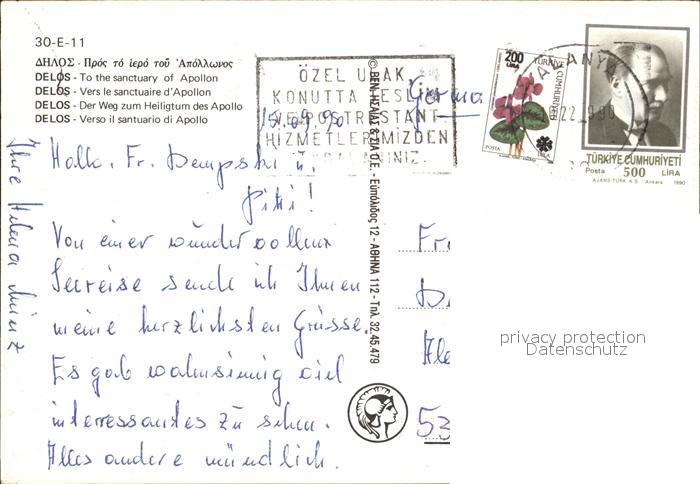 30-E-11
ΔΗΛΟΣ - Πρός τό ἱερό τοῦ Ἀπόλλωνος
DELOS - To the sanctuary of Apollon
DELOS - Vers le sanctuaire d'Apollon
DELOS - Der Weg zum Heiligtum des Apollo
DELOS - Verso il santuario di Apollo
ÖZEL UÇAK,
KONUTTA TESLİM
VE POSTRESTANT
HİZMETLERİMİZDEN
15.09.90
Germa
200
LİRA
TÜRKİYE CUMHURİYETİ
POSTA
LİRA
ALANYA
22 9 90
TÜRKİYE CUMHURİYETİ
Posta 500 LİRA
AJANS-TÜRK A.Ş. Ankara 1990
Hallo, Fr. Dempski u.
Pitti!
Von einer wundervollen
Seereise sende ich Ihnen
meine herzlichsten Grüsse.
Es gab wahnsinnig viel
interressantes zu sehen.
Alles andere mündlich.
Ihre Helena
© ΒΕΝΙ ΗΣΑΪΑΣ & ΣΙΑ Ο.Ε. - Εὐπόλιδος 12 - ΑΘΗΝΑ 112 - Τηλ. 32.45.479
Fr.
D
Ale
53
privacy protection
Datenschutz